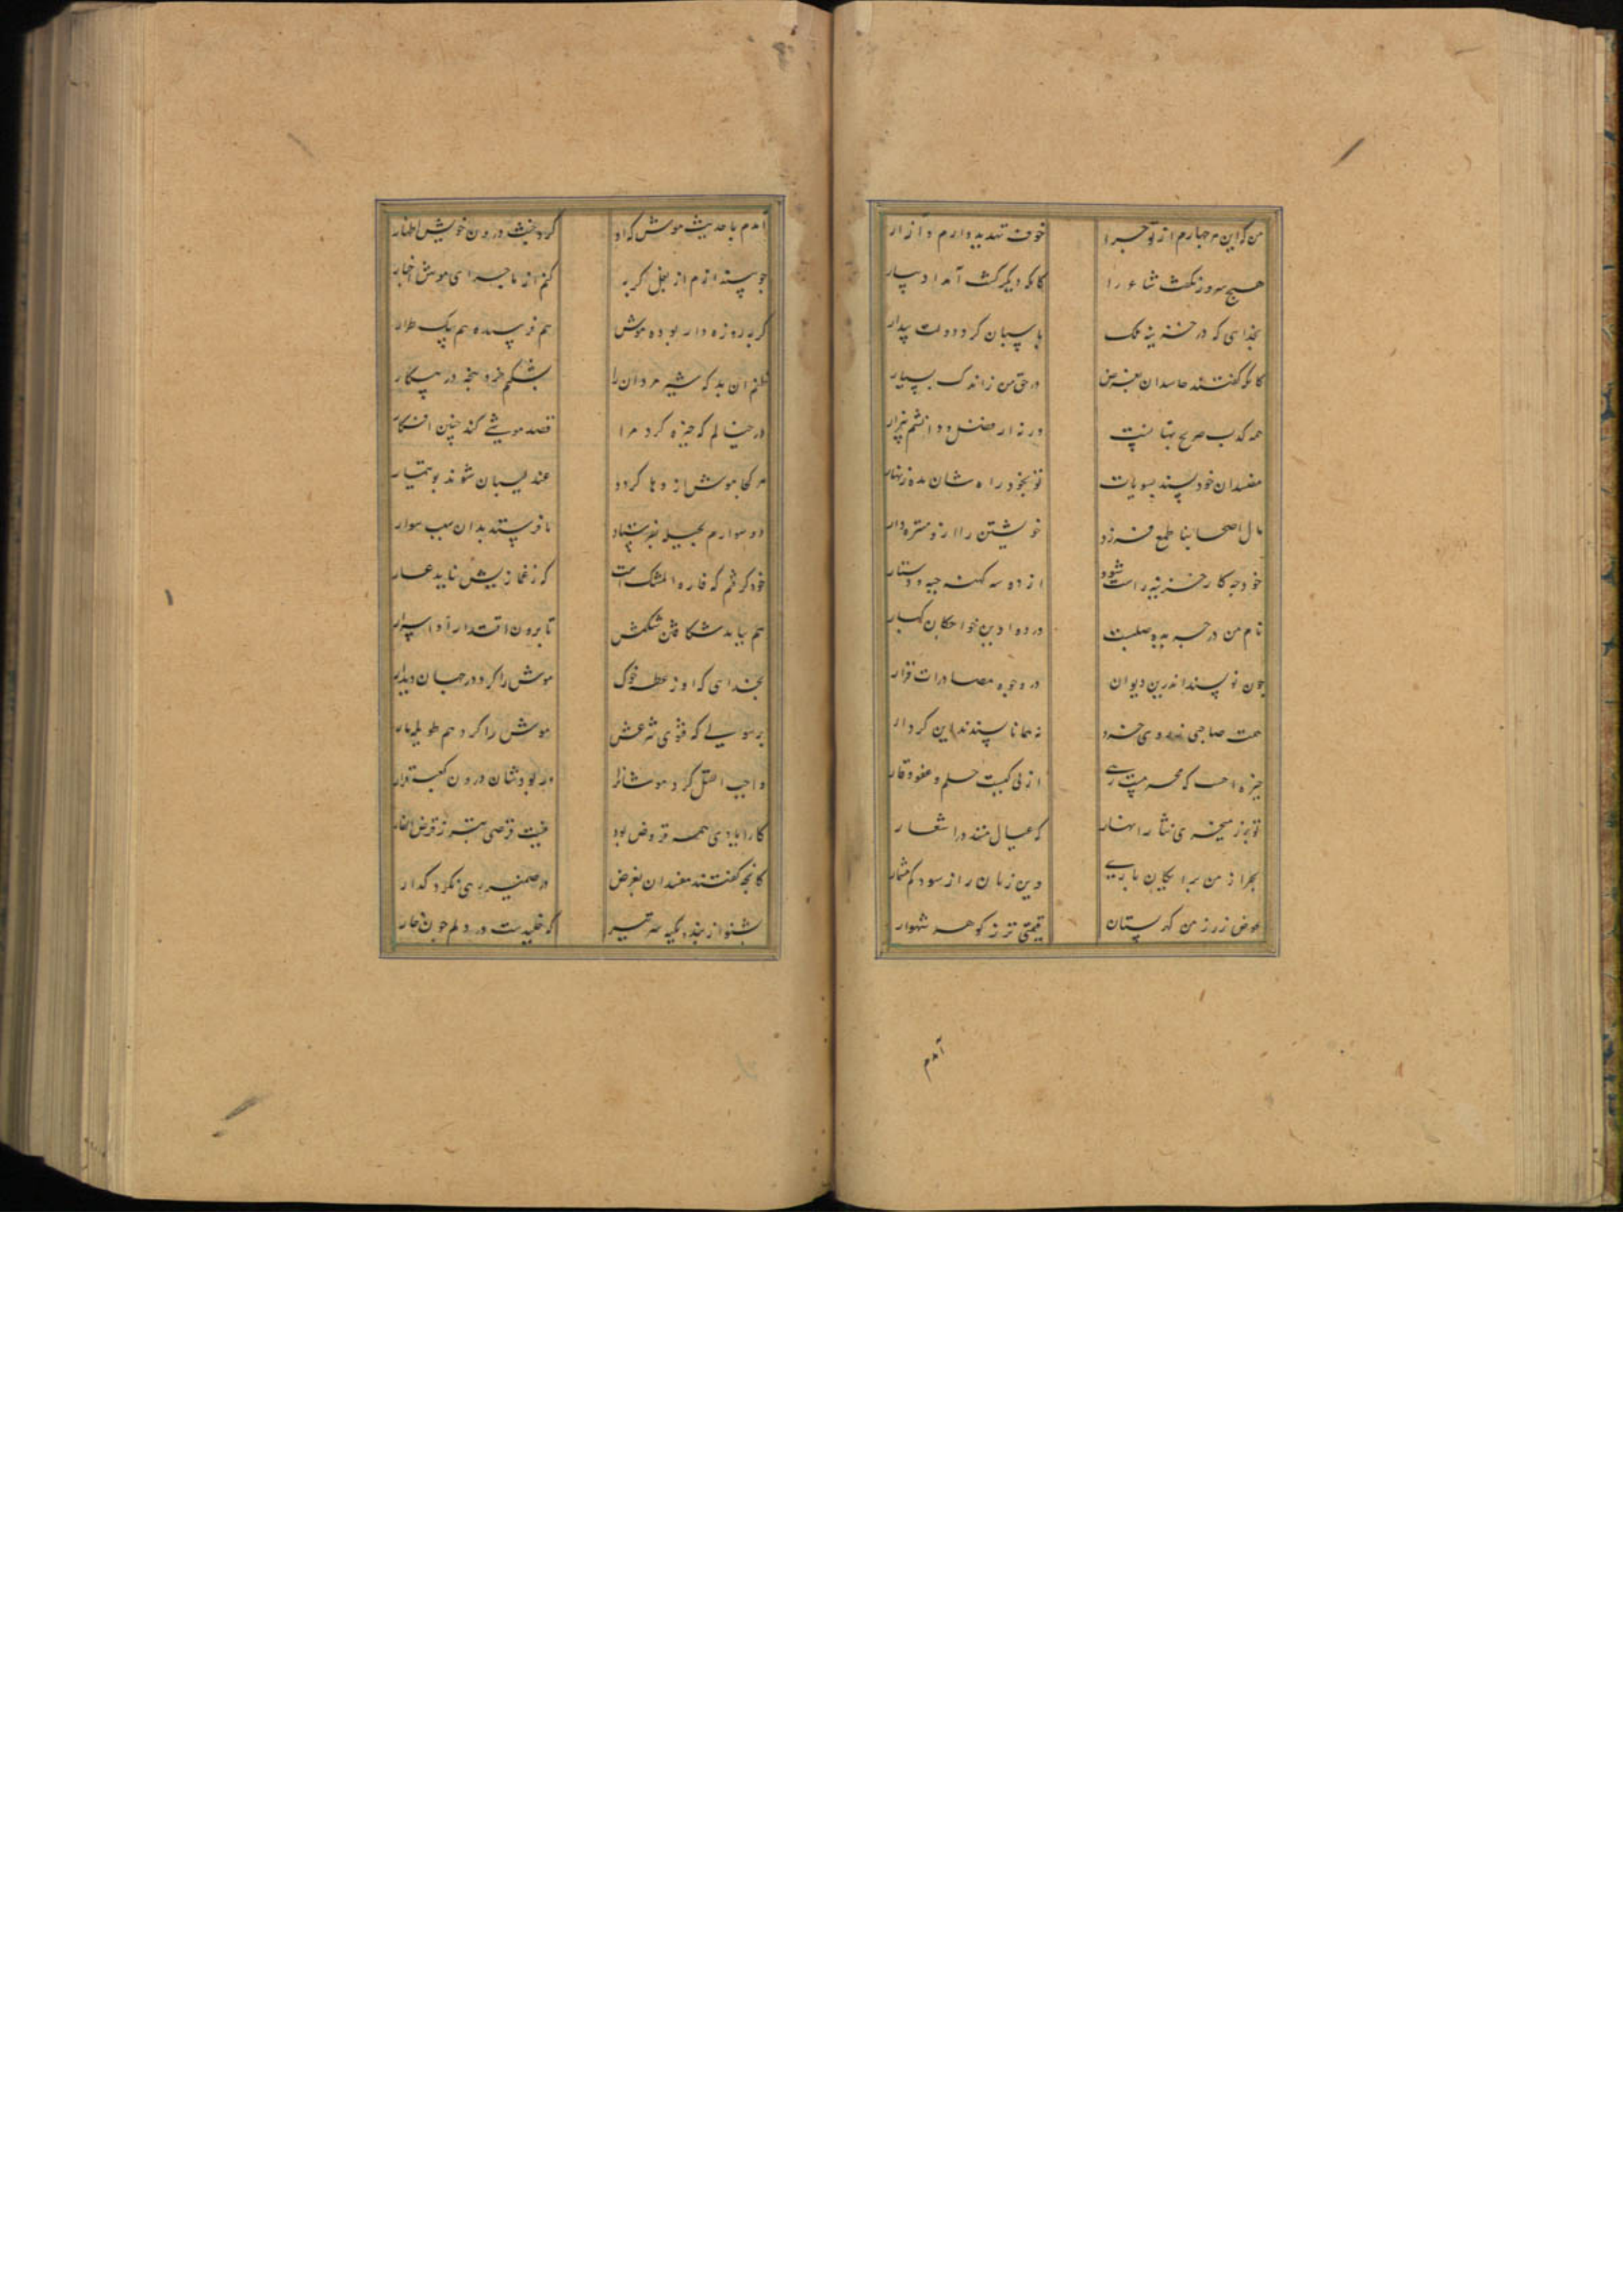 من که این هر چهارم از تو چرا خوف تهدید دارم و آزار
هیچ سروز نکشت شاعر را کانکه دیگر کشت آمد او بسیار
بخدایی که در خزینه ملک پاسبان کرد دولت بیدار
کانکه گفتند حاسدان بغرض در حق من ز اندک بسیار
همه کذب صریح بهتانست ورنه از فضل و دانشم بیزار
مفسدان خود پسند بسویات تو بخود راه شان مده زنهار
مال اصحاب طمع خویشتن را ازو منزه دار
خود چه کار خزینه راست شود از دو سه کهنه جبه و دستار
نام من در جریده صلتست در دواوین خواجگان کبار
چون نویسند اندرین دیوان در وجوه مصادرات قرار
همت صاحبی خرد نه همانا پسندد این کردار
چیزه کمیت حلم و عفو و وقار
تو بجز نثار انهار که عیال منند در اشعار
بخر از من برایگان باری وین زیان را ز سود کم مشمار
عوض زر ز من گهر بستان قیمتی تر ز گوهر شهوار
آمدم
آمدم با حدیث موش که او کرد خبث درون خویش اظهار
چو بیندازم از بغل گربه کنم از ماجرای موش اخبار
گربه روزه دار بوده موش هم فرسنده هم سبک
ظنم آن بد که شیر مردان را بشکم خرد پنجه در پیکار
در خیالم که چیزه کرد مرا قصد موشی کند چنین افکار
هر کجا موش اژدها گردد عندلیبان شوند بوتیمار
دو سوارم بحیله نفرستاد تا فرستد بدان سبب سوار
خود گرفتم که فاره المشک است که ز غمازیش نباید عار
هم بباید شکافتن شکمش تا برون افتد از او اسرار
بخدایی که او ز عطسه خوک موش را کرد در جهان دیدار
برسولی که فتوی شرعش موش را کرد هم طویله مار
واجب القتل کرد موشانرا ور بودشان درون کعبه قرار
کار ایادی همه قروض بود نیست قرضی بتر ز قرض الفار
کانچه گفتند مفسدان بغرض در ضمیر رهی نکرد گذار
بشنو از بنده یکیه که خلیدست در دلم چون خار